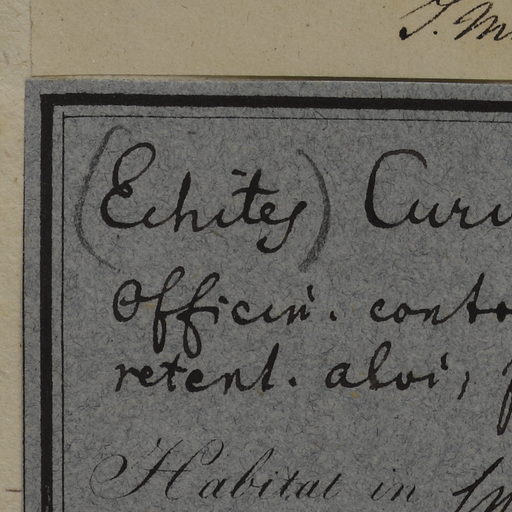 T. M
(Echites) Curu
Officin. conto
retent. alvi,
Habitat in